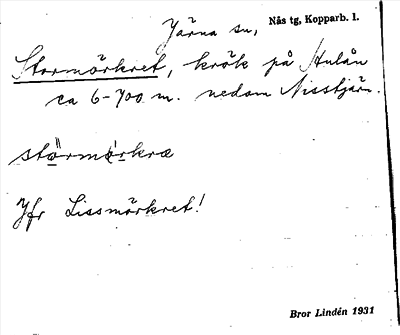 Järna sn, Nås tg, Kopparb. l.
Stormörkret, krök på Hulån
ca 6-700 m. nedom Nisstjärn.
störmörkre
Jfr Lissmörkret!
Bror Lindén 1931